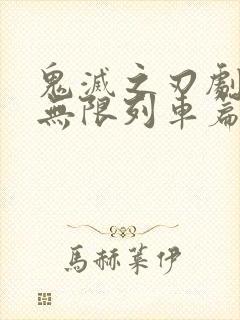 鬼滅之刃劇
無限列車篇
馬赫萊伊